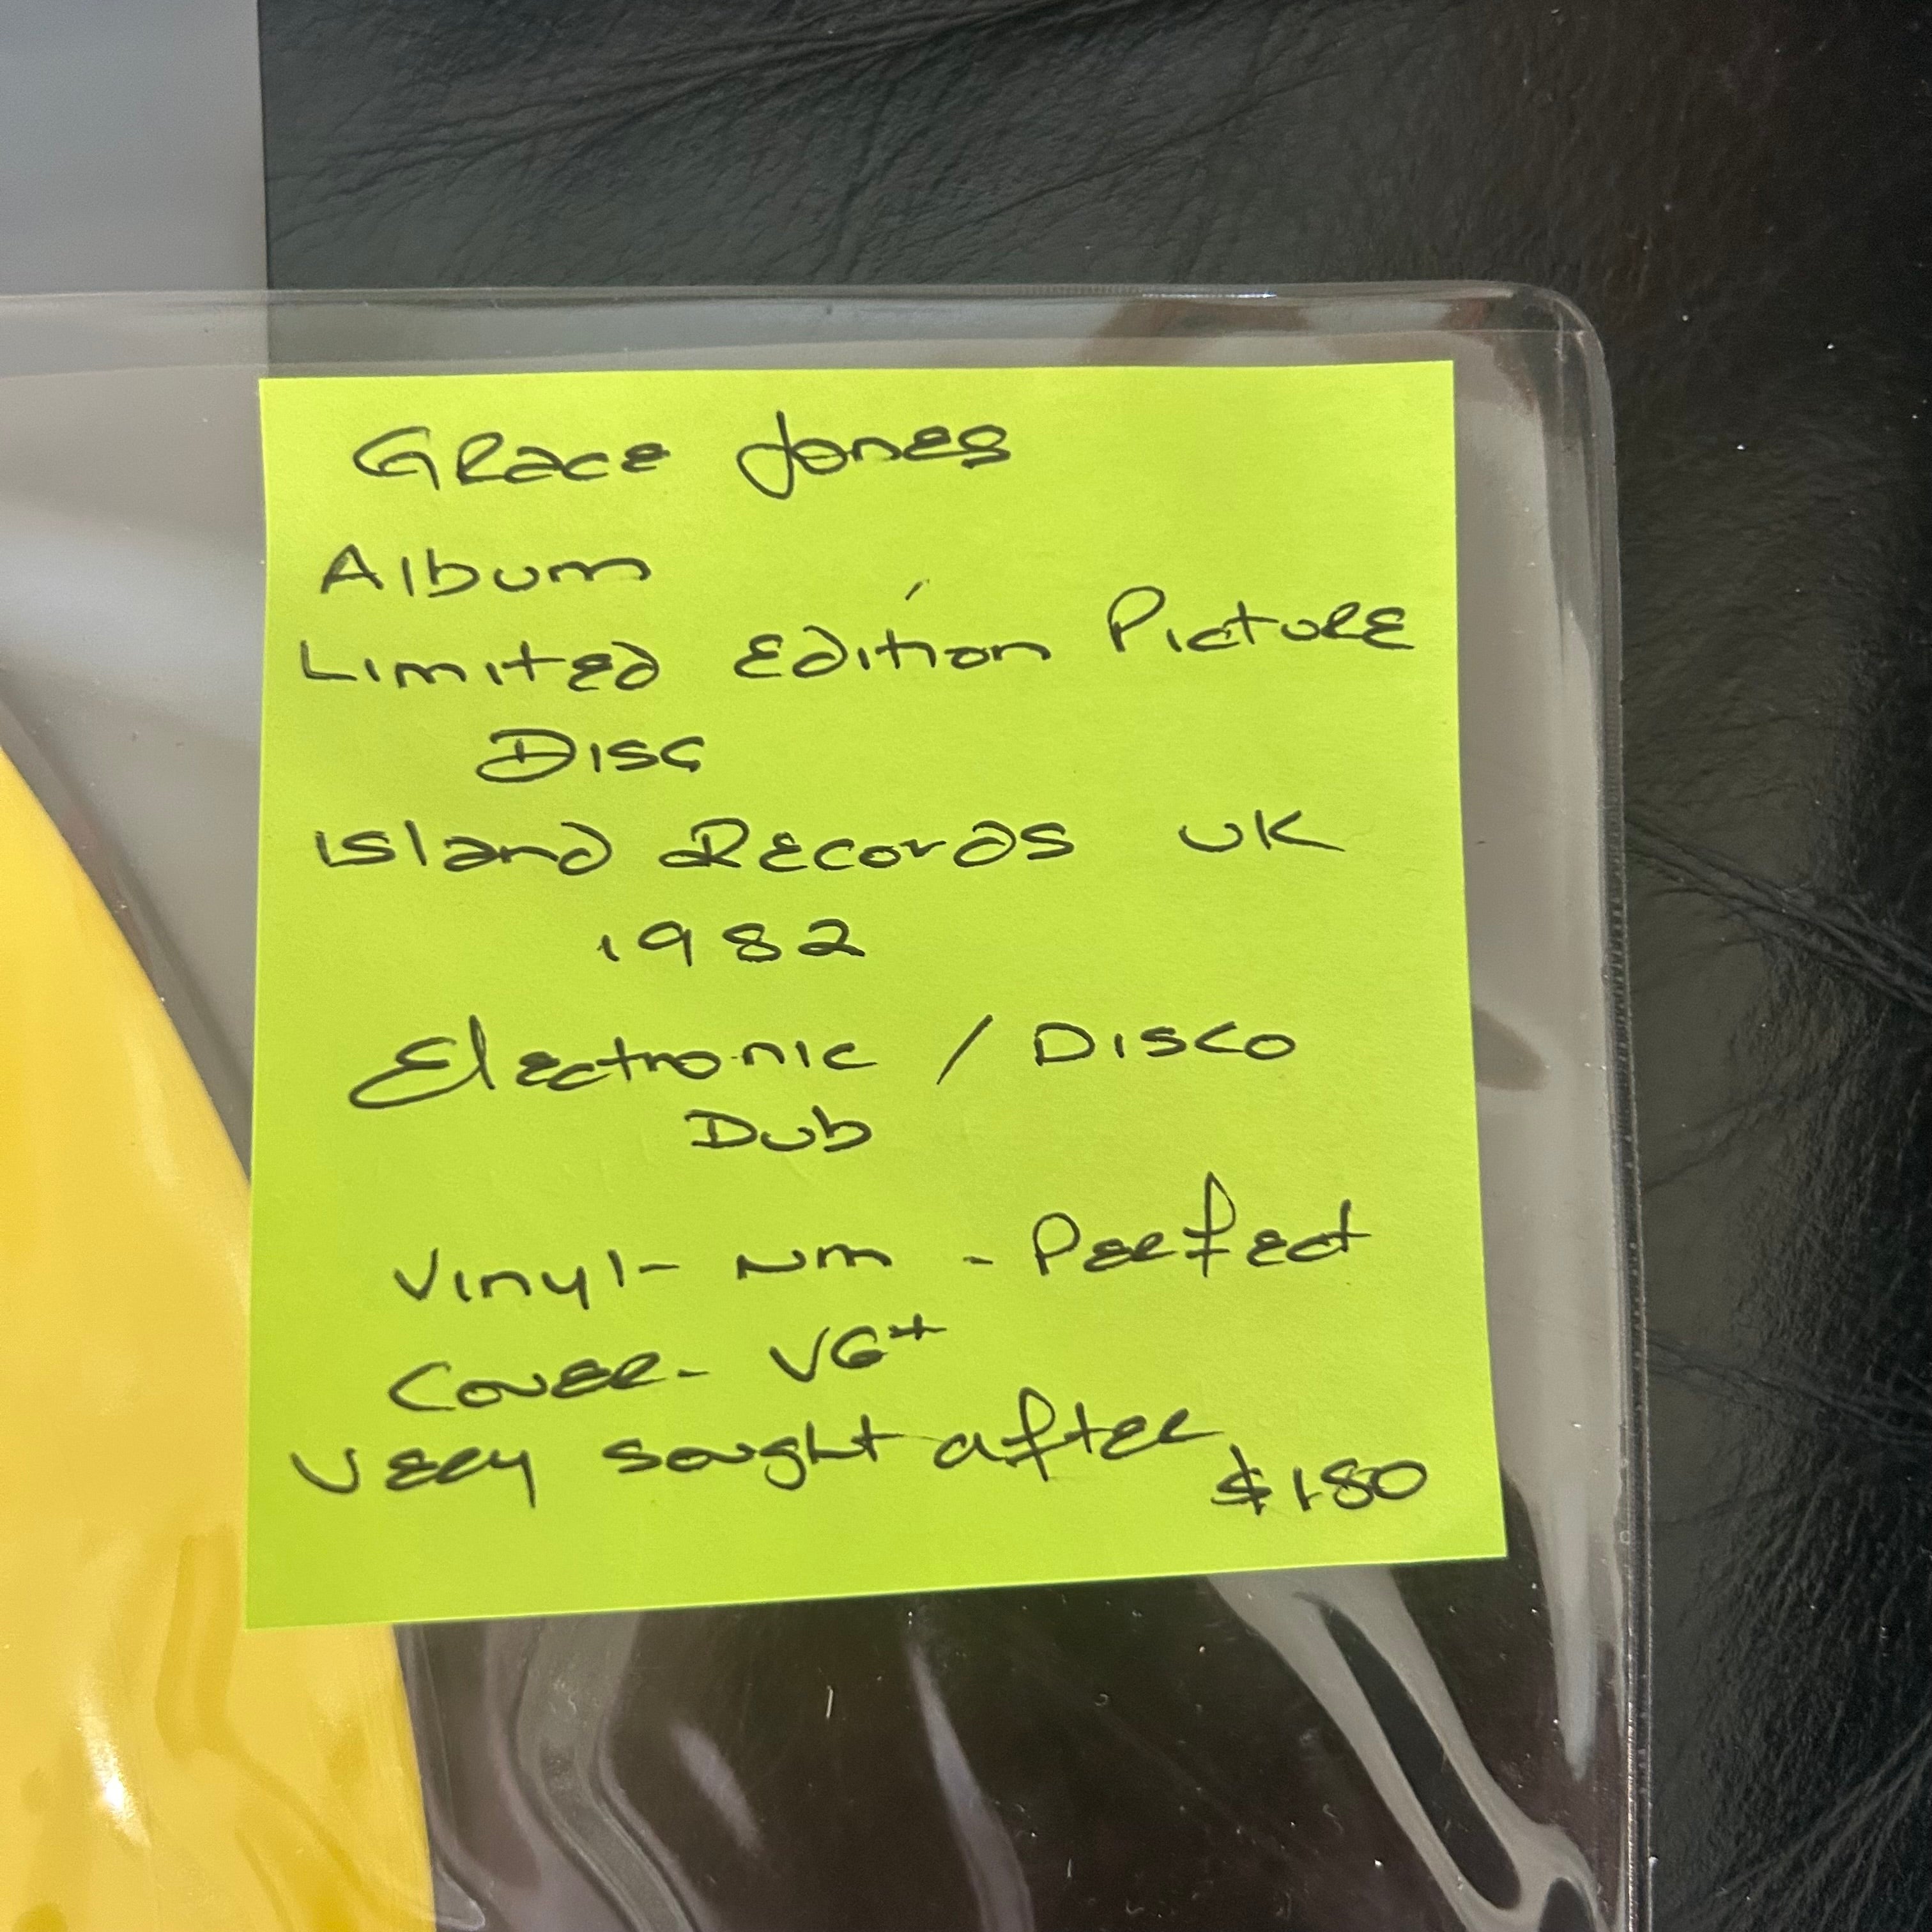 Grace Jones
Album
Limited Edition Picture
Disc
Island Records UK
1982
Electronic / Disco
Dub
Vinyl - NM - Perfect
Cover - VG+
Very sought after
$180